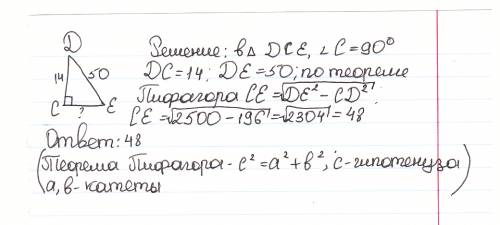 D
Решение: в△ DCE, ∠C=90°
14 50
DC=14; DE=50; по теореме
C E
?
Пифагора CE=√DE²-CD²;
CE=√2500-196=√2304=48
Ответ: 48
(Теорема Пифагора-c²=a²+b², c-гипотенуза
a, b-катеты)